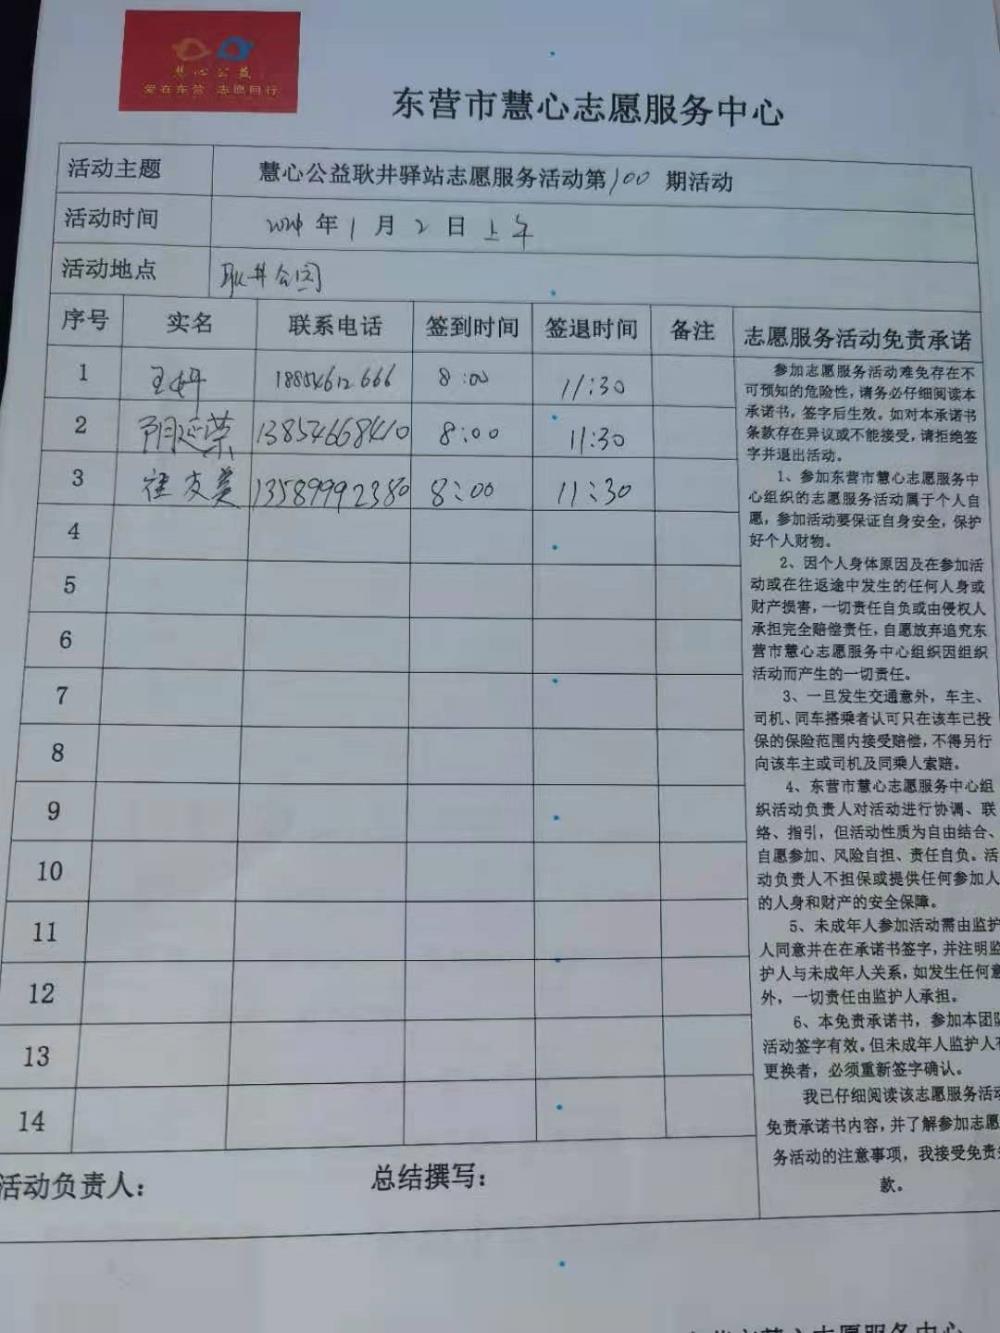 慧心公益
爱在东营 志愿同行
东营市慧心志愿服务中心
活动主题 慧心公益耿井驿站志愿服务活动第100期活动
活动时间 2024年1月2日上午
活动地点 耿井公园
序号 实名 联系电话 签到时间 签退时间 备注
1 王 18854612666 8:00 11:30
2 阴延荣 13854668410 8:00 11:30
3 友美 13589992380 8:00 11:30
4
5
6
7
8
9
10
11
12
13
14
活动负责人： 总结撰写：
志愿服务活动免责承诺
参加志愿服务活动难免存在不
可预知的危险性，请务必仔细阅读本
承诺书，签字后生效。如对本承诺书
条款存在异议或不能接受，请拒绝签
字并退出活动。
1、参加东营市慧心志愿服务中
心组织的志愿服务活动属于个人自
愿，参加活动要保证自身安全，保护
好个人财物。
2、因个人身体原因及在参加活
动或在往返途中发生的任何人身或
财产损害，一切责任自负或由侵权人
承担完全赔偿责任，自愿放弃追究东
营市慧心志愿服务中心组织因组织
活动而产生的一切责任。
3、一旦发生交通意外，车主、
司机、同车搭乘者认可只在该车已投
保的保险范围内接受赔偿，不得另行
向该车主或司机及同乘人索赔。
4、东营市慧心志愿服务中心组
织活动负责人对活动进行协调、联
络、指引，但活动性质为自由结合、
自愿参加、风险自担、责任自负。活
动负责人不担保或提供任何参加人
的人身和财产的安全保障。
5、未成年人参加活动需由监护
人同意并在在承诺书签字，并注明监
护人与未成年人关系，如发生任何意
外，一切责任由监护人承担。
6、本免责承诺书，参加本团队
活动签字有效。但未成年人监护人有
更换者，必须重新签字确认。
我已仔细阅读该志愿服务活动
免责承诺书内容，并了解参加志愿
务活动的注意事项，我接受免责
款。
东营市慧心志愿服务中心